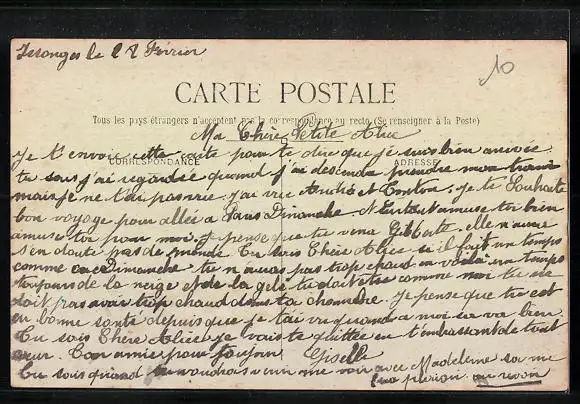 le 22 Février
10
CARTE POSTALE
Tous les pays étrangers n'acceptent pas la correspondance au recto (Se renseigner à la Poste)
Ma Chère Petite Alice
CORRESPONDANCE
ADRESSE
Je t'envoie cette carte pour te dire que je suis bien arrivée
tu sais j'ai regardée quand j'ai descendu prendre mon train
mais je ne t'ai pas vue. j'ai vu André et Je te Souhaite
bon voyage pour allée a Paris Dimanche et surtout amuse toi bien
amuse toi pour moi. Je pense que tu vera elle n'aura
s'en doute pas de monde. Tu sais Chère Alice si il fait un temps
comme ce Dimanche tu n'auras pas trop chaud en voilà un temps
toujours de la neige et de la gelé tu doit etre comme moi tu ne
doit pas avoir trop chaud dans ta chambre. Je pense que tu est
en bonne santé depuis que je t'ai vu quand a moi sa va bien
Tu sais Chère Alice je vais te quittée en t'embrassant de tout
cœur. Ton amie pour toujour Giselle
Tu sais quand tu voudras venir me voir avec Madeleine sa me
fera plaisir au revoir